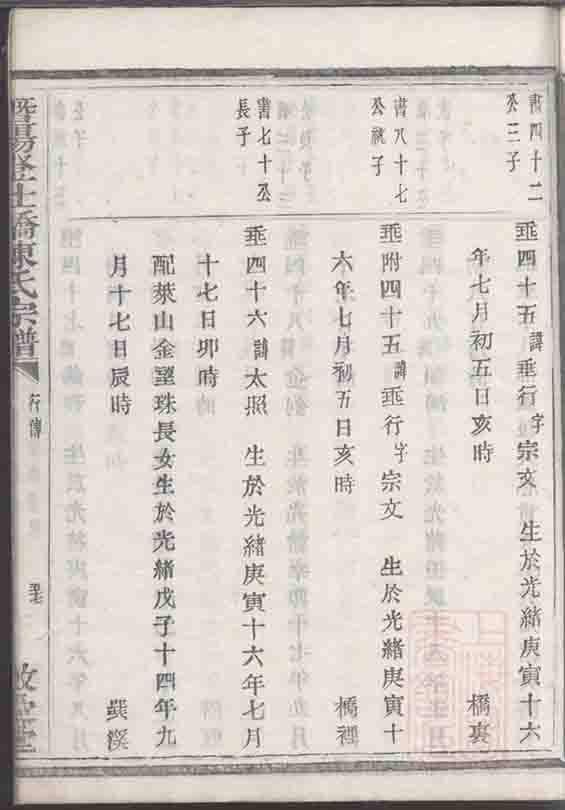 書四十二
公三子
垂四十五諱垂行字宗文 生於光緒庚寅十六
年七月初五日亥時 橋裏
書八十七
公祧子
垂附四十五諱垂行字宗文 生於光緒庚寅十
六年七月初五日亥時 橋裡
書七十公
長子
垂四十六諱太照 生於光緒庚寅十六年七月
十七日卯時
配萊山金望珠長女生於光緒戊子十四年九
月十七日辰時 蘇溪
暨陽登仕橋陳氏宗譜
行傳